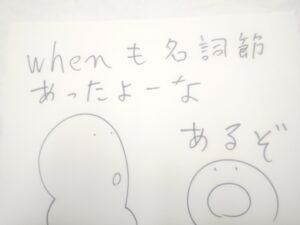 whenも名詞節
あったよーな
あるぞ